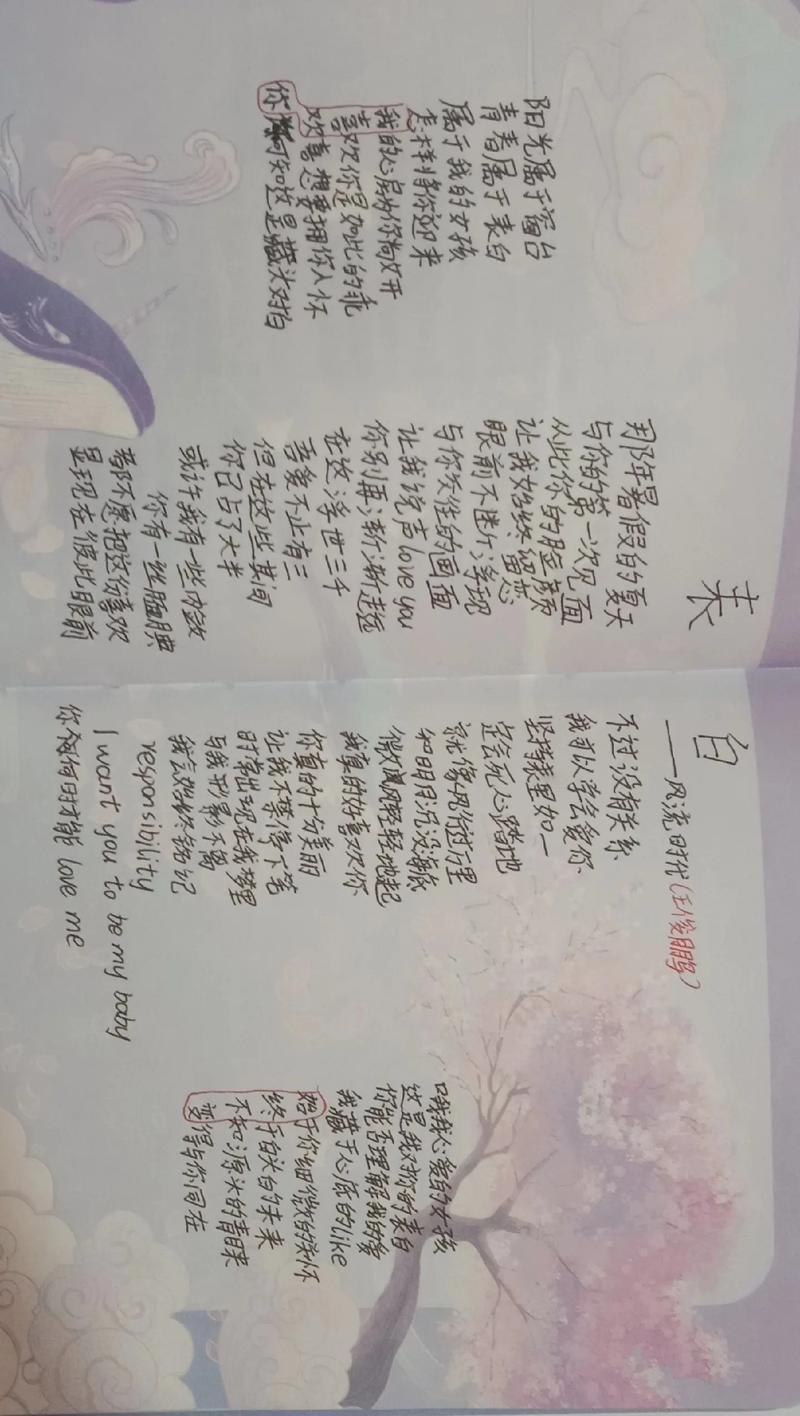 表白
——风流时代(汪俊朋)
阳光属于窗台
青春属于表白
属于我的女孩
怎样将你迎来
我的心房为你敞开
喜欢你是如此的乖
欢喜想要拥你入怀
你何知这是藏头对白
那年暑假的夏天
与你的第一次见面
从此你的脸颜
让我始终留恋
眼前不断浮现
与你交往的画面
让我说声love you
你别再渐渐走远
在这浮世三千
吾爱不止有三
但在这些其间
你已占了大半
或许我有一些内敛
你有一丝腼腆
都不愿把这份喜欢
显现在彼此眼前
不过没有关系
我可以学会爱你
坚持我里如一
定会死心踏地
就像风往里
知明月沉没海底
微风轻轻地起
我真的好喜欢你
你真的十分美丽
让我不禁停下笔
时常出现在我梦里
与我形影不离
我会始终铭记
responsibility
I want you to be my baby
你何时才能 love me
哦我心爱的女孩
这是我对你的表白
你能否理解我的爱
我藏于心底的like
始于你细微的关怀
终于白头的未来
不知源头的青睐
变得与你同在